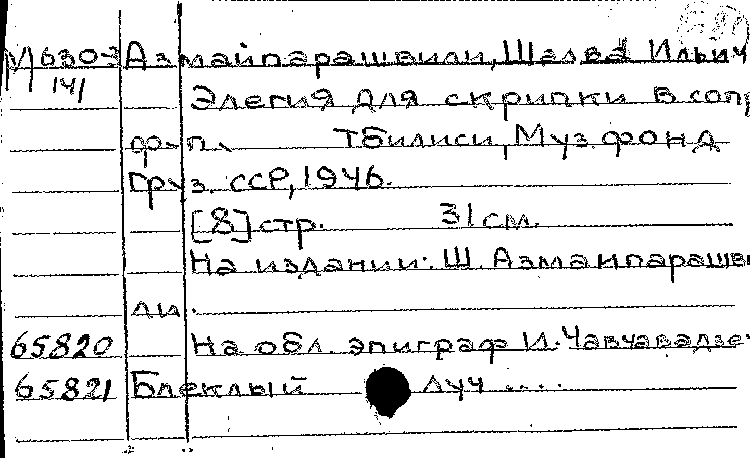 М 630-3 Азмайпарашвили, Шалва Ильич
141
Элегия для скрипки в сопр
ф-п. Тбилиси, Муз. фонд
Груз. ССР, 1946.
[8] стр. 31 см.
На издании: Ш. Азмаипарашви
ли.
65820 На обл. эпиграф И. Чавчавадзе:
65821 Блеклый луч ....